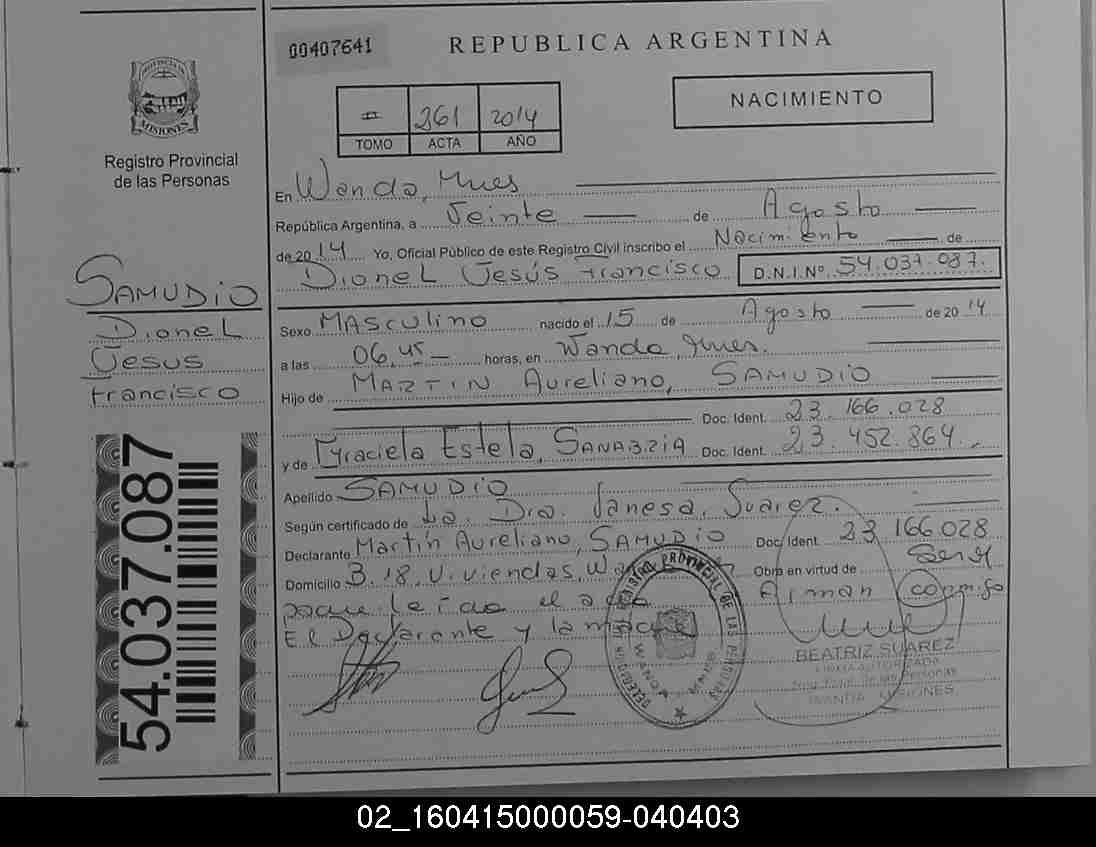 00407641
REPUBLICA ARGENTINA
PROVINCIA DE
MISIONES
Registro Provincial
de las Personas
II 261 2014
TOMO ACTA AÑO
NACIMIENTO
En Wanda, Mnes
República Argentina, a Veinte de Agosto
de 2014 Yo, Oficial Público de este Registro Civil inscribo el Nacimiento de
Dionel Jesús Francisco D.N.I.Nº. 54.037.087.
SAMUDIO
Dionel
Jesus
Francisco
54.037.087
Sexo MAsculino nacido el 15 de Agosto de 2014
a las 06,45 horas, en Wanda, Mnes.
Hijo de MARTIN Aureliano, SAMUDIO
Doc. Ident. 23.166.028
y de Graciela Estela, SANABRIA Doc. Ident. 23.452.864.
Apellido SAMUDIO
Según certificado de La. Dra. Vanesa, Suarez.
Declarante Martín Aureliano, SAMUDIO Doc. Ident. 23 166.028
Domicilio B. 18 Viviendas, Obra en virtud de
leida el acta Firman conmigo
El Declarante y la madre
REGISTRO PROVINCIAL DE LAS PERSONAS
DELEGACION
WANDA
BEATRIZ SUAREZ
FIRMA AUTORIZADA
Reg. Prov. de las Personas
WANDA - MISIONES
02_160415000059-040403